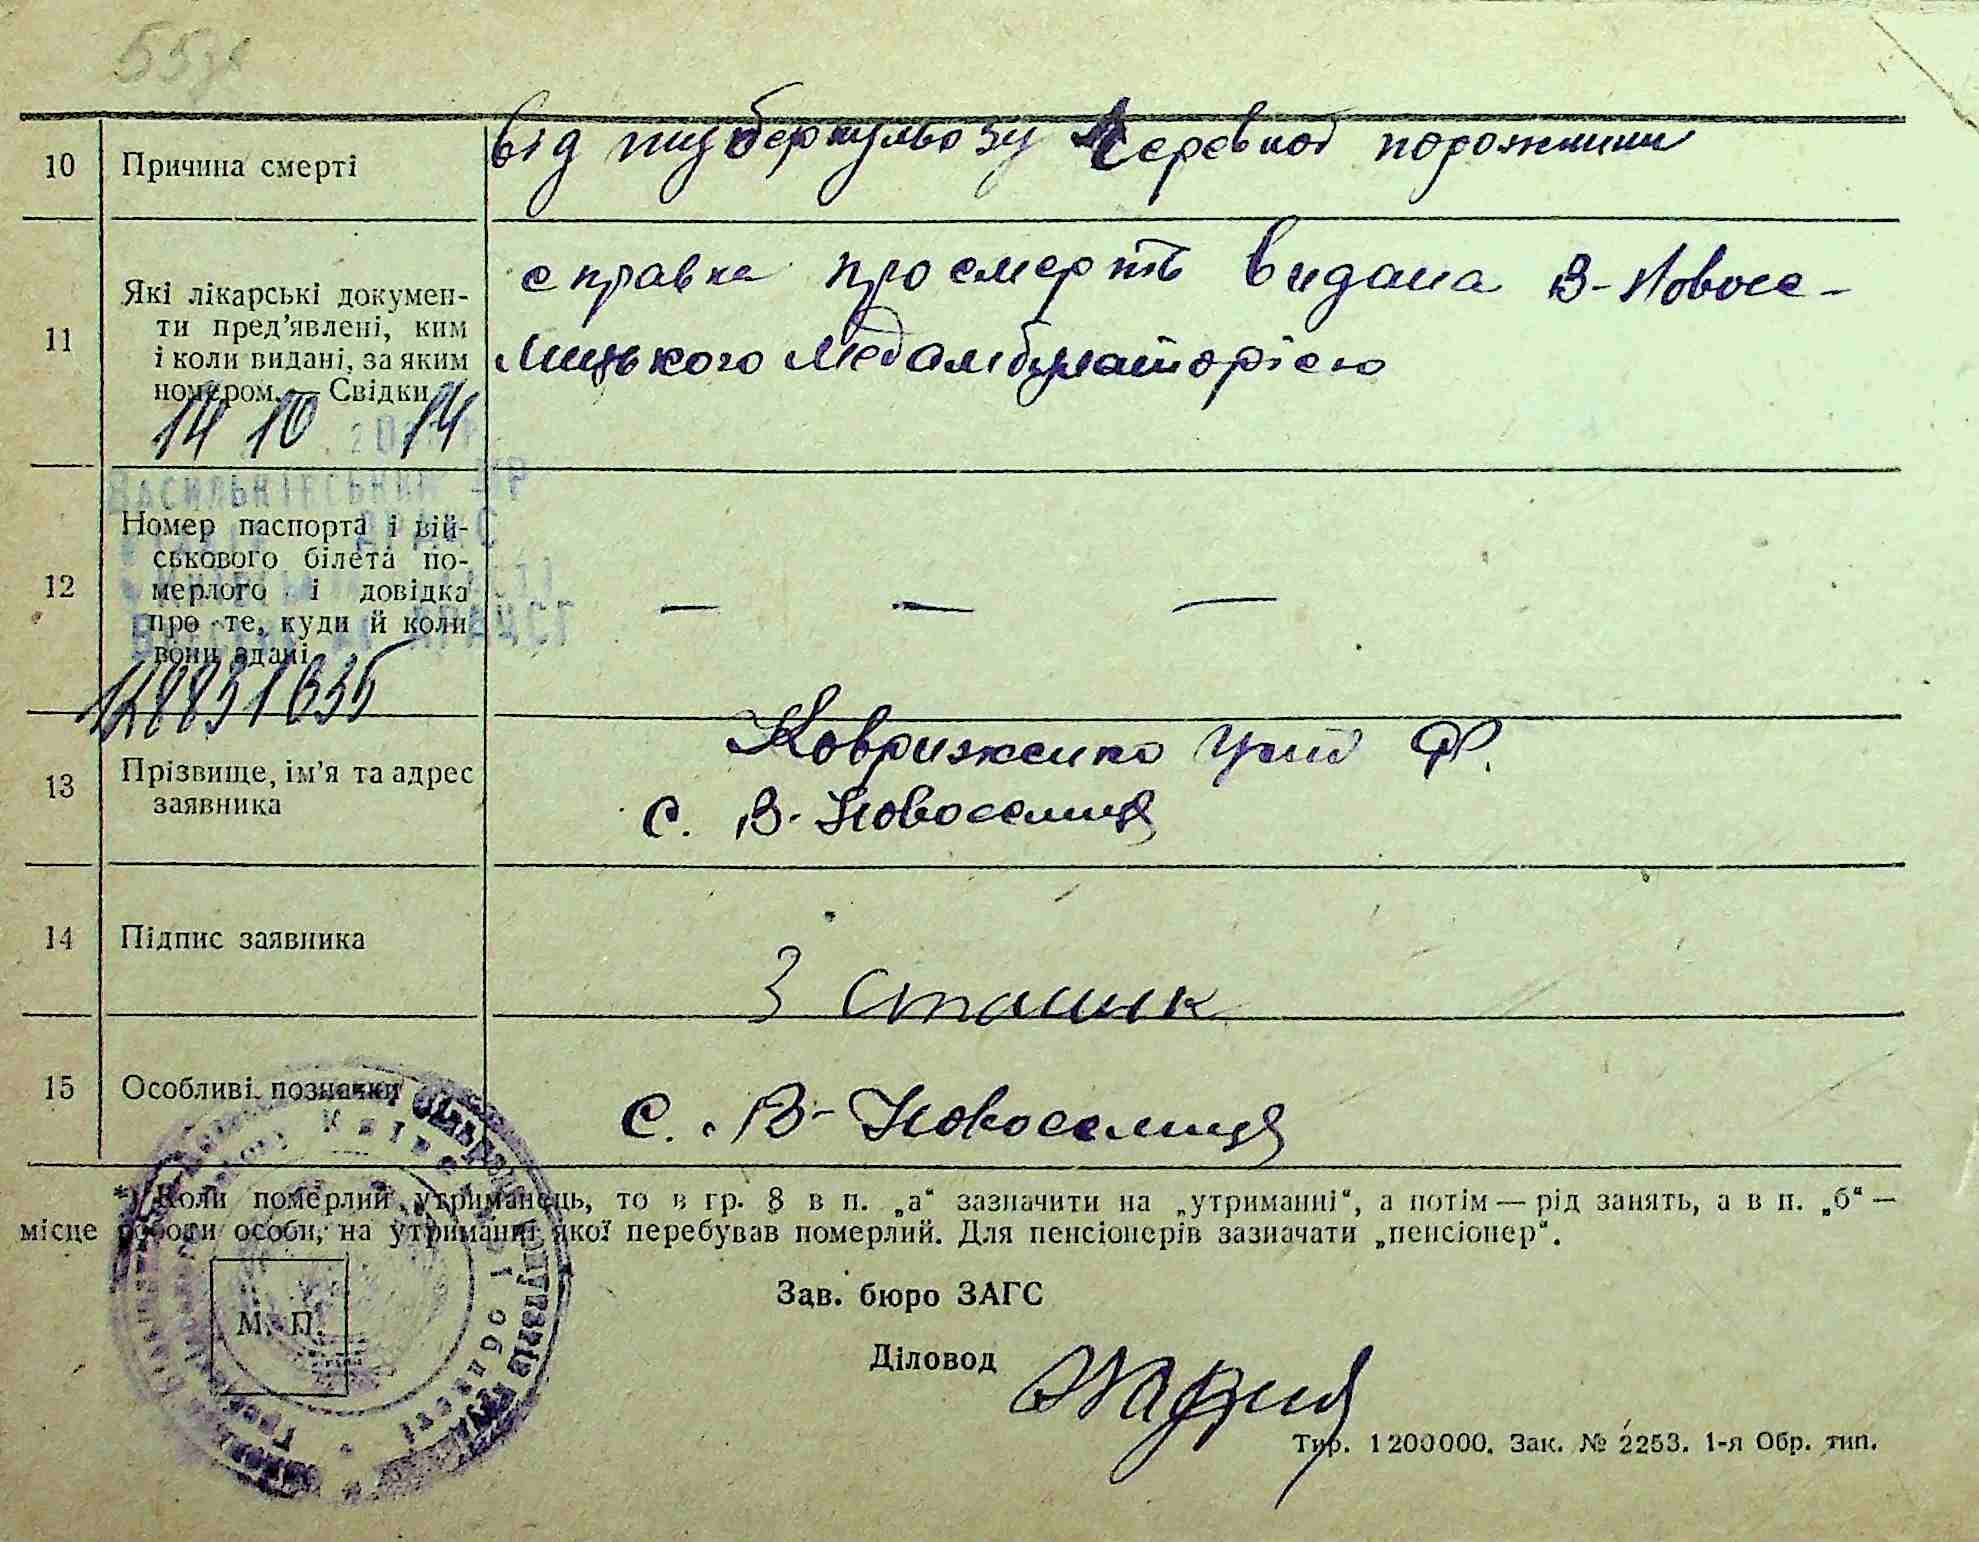 10 Причина смерті від туберкульозу Черевної порожнини
11 Які лікарські докумен-
ти пред'явлені, ким
і коли видані, за яким
номером. — Свідки
справка про смерть видана В-Новосе-
лицького Медамбулаторією
14 10 14
ВАСИЛЬКІВСЬКИЙ
12 Номер паспорта і вій-
ськового білета по-
мерлого і довідка
про те, куди й коли
вони здані
— — —
13 Прізвище, ім'я та адрес
заявника
Ковриженко Ф.
с. В-Новоселиця
14 Підпис заявника
15 Особливі позначки
с. В-Новоселиця
*) Коли померлий утриманець, то в гр. 8 в п. „а" зазначити на „утриманні", а потім — рід занять, а в п. „б" —
місце роботи особи, на утриманні якої перебував померлий. Для пенсіонерів зазначати „пенсіонер".
М. П.
Зав. бюро ЗАГС
Діловод
Тир. 1200000. Зак. № 2253. 1-я Обр. тип.